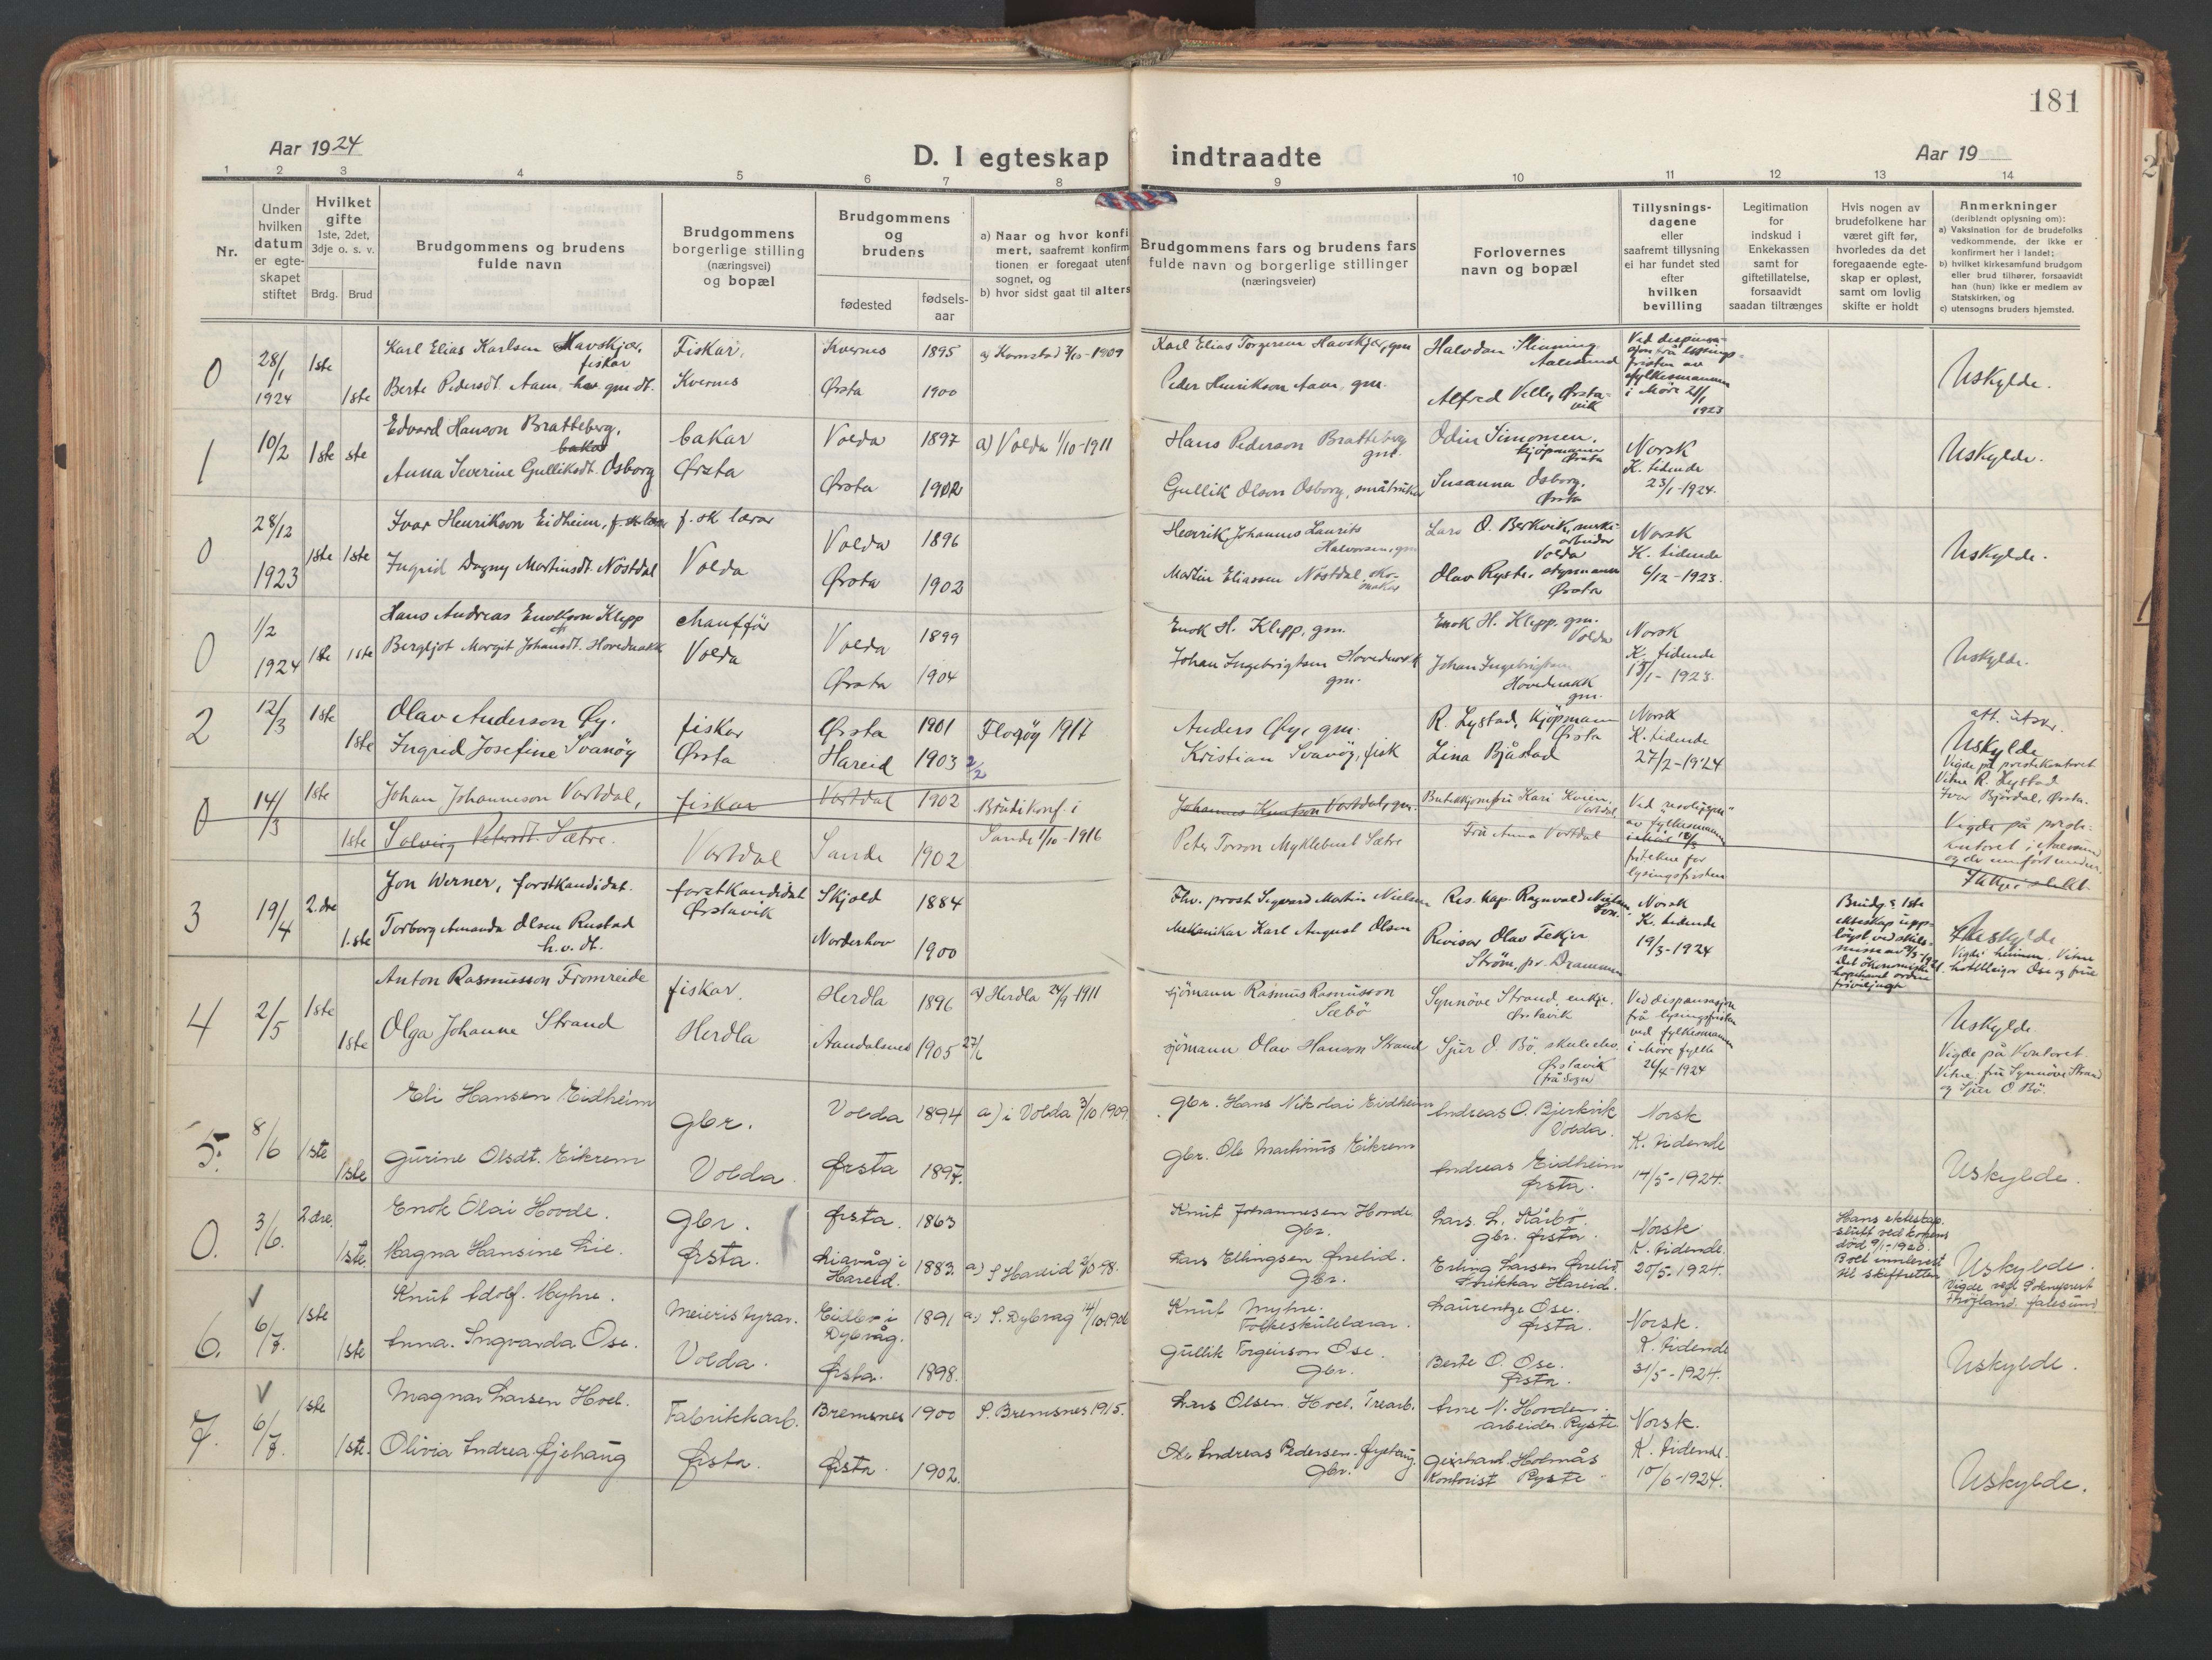 181
Aar 1924
D. I egteskap indtraadte
Aar 19
1 2 3 4 5 6 7 8 9 10 11 12 13 14
Nr.
Under hvilken datum er egteskapet stiftet
Hvilket gifte
1ste, 2det, 3dje o. s. v.
Brdg. Brud
Brudgommens og brudens
fulde navn
Brudgommens
borgerlige stilling
(næringsvei)
og bopæl
Brudgommens
og
brudens
fødested
fødsels-
aar
a) Naar og hvor konfi
mert, saafremt konfirm
tionen er foregaat utenf
sognet, og
b) hvor sidst gaat til alters
Brudgommens fars og brudens fars
fulde navn og borgerlige stillinger
(næringsveier)
Forlovernes
navn og bopæl
Tillysnings-
dagene
eller
saafremt tillysning
ei har fundet sted
efter
hvilken
bevilling
Legitimation
for
indskud i
Enkekassen
samt for
giftetillatelse,
forsaavidt
saadan tiltrænges
Hvis nogen av
brudefolkene har
været gift før,
hvorledes da det
foregaaende egte-
skap er opløst,
samt om lovlig
skifte er holdt
Anmerkninger
(deriblandt oplysning om):
a) Vaksination for de brudefolks
vedkommende, der ikke er
konfirmert her i landet;
b) hvilket kirkesamfund brudgom
eller brud tilhører, forsaavidt
han (hun) ikke er medlem av
Statskirken, og
c) utensogns bruders hjemsted.
0 28/1 1924 1ste Karl Elias Karlsen Havskjær, fiskar Fiskar, Kvernes 1895 a) Kornstad 3/10-1909 Karl Elias Torgersen Havskjær, gm Halvdan Slinning Aalesund
1ste Berte Pedersdt. Aam, gm dt. Kvernes Ørsta 1900 Peder Henrikson Aam, gm. Alfred Velle, Ørstavik
i Møre 21/1 1923
Uskylde.
1 10/2 1ste ste Edvard Hanson Bratteberg, bakar bakar Volda 1897 a) Volda 1/10-1911 Hans Pederson Bratteberg gm. Odin Simonsen, kjøpmann Ørsta Norsk K. tidende 23/1-1924. Uskylde.
Anna Severine Gulliksdt. Osborg Ørsta Ørsta 1902 Gullik Olson Osborg, småbrukar Susanna Osborg, Ørsta
0 28/12 1923 1ste 1ste Ivar Henrikson Eidheim, f. sk lærar f. sk lærar Volda 1896 Henrik Johannes Laurits Halvorsen, gm Lars O. Berkvik, Volda Norsk K. tidende 6/12-1923. Uskylde.
Ingrid Dagny Martinsdt. Nöstdal Volda Ørsta 1902 Martin Eliassen Nöstdal, skomakar Olav Ryste, Ørsta
0 1/2 1924 1ste 1ste Hans Andreas Enokson Klepp chaufför Volda 1899 Enok H. Klepp, gm. Enok H. Klepp, gm. Volda Norsk K. tidende 15/1-1923. Uskylde.
Bergljot Margit Johansdt. Hovednakk Volda Ørsta 1904 Johan Ingebrigtsen Hovednakk gm. Johan Ingebrigtsen Hovednakk gm.
2 12/3 1ste Olav Anderson Øy. fiskar Ørsta 1901 Florøy 1917 Anders Øy, gm. R. Lystad, Kjöpmann Ørsta Norsk K. tidende 27/2-1924 att. utskr. Uskylde
1ste Ingrid Josefine Svanöy Ørsta Hareid 1903 Kristian Svanöy, fisk Lina Bjåstad Vigde på prestekontoret. Vitne R. Lystad. Ivar Bjørdal, Ørsta.
0 14/3 1ste Johan Johanneson Vartdal, fiskar Vartdal 1902 Brudi konf. i Sande 1/10-1916 Johannes Knutson Vartdal, gm.
1ste Solveig Petersdt. Sætre. Vartdal Sande 1902 Peter Torson Myklebust Sætre Frü Anna Vartdal
Vigde på prestekontoret i Aalesund
3 19/4 2.dre Jon Werner, forstkandidat. forstkandidat Ørstavik Skjold 1884 Fhv. prost Sigvard Martin Nielsen Res. kap. Ragnvald Nielsen, Norsk K. tidende 19/3-1924
1.ste Torborg Amanda Olsen Rustad h.v. dt. Norderhov 1900 Mekanikar Karl August Olsen Revisor Olav Tekjer Strøm, pr. Drammen
Brudg.s 1ste ekteskap
Uskylde
4 2/5 1ste Anton Rasmusson Fromreide fiskar. Herdla 1896 a) Herdla 24/9-1911 sjömann Rasmus Rasmusson Sæbö Synnöve Strand, enkje. Ørstavik Ved dispensasjon frå lysingsfristen ved fylkesmannen i Møre fylke 26/4-1924
1ste Olga Johanne Strand Herdla Aandalsnes 1905 sjömann Olav Hanson Strand Sjur O. Bö, skuleelev. Ørstavik (frå Sogn)
Uskylde Vigde på Kontoret. Vitne frü Synnöve Strand og Sjur O Bö.
5. 8/6 1ste Eli Hansen Eidheim gbr. Volda 1894 a) i Volda 3/10 1909. gbr. Hans Nikolai Eidheim Andreas O. Bjerkvik Volda. Norsk K. tidende 14/5-1924. Uskylde.
1ste Gurine Olsdt. Eikrem Volda. Ørsta 1897. gbr. Ole Martinus Eikrem Andreas Eidheim Ørsta.
0. 3/6. 2dre. Enok Olai Hovde. gbr. Ørsta. 1863 Knut Johannesen Hovde. gbr. Lars L. Kårbö. gbr. Ørsta. Norsk K. tidende. 20/5-1924.
1ste Magna Hansine Lie. Ørsta. Liavåg i Hareid. 1883. a) I Hareid 2/10 98. Lars Ellingsen gbr. Erling Larsen Hareid.
Hans ekteskap slutt ved konens död 9/1-1920.
Uskylde.
6. 6/7. 1ste Knut Adolf Myhre. Meieristyrar. Dybvåg. 1891 a) I. Dybvag 14/10 1906 Knut Myhre. Folkeskulelærar. Laurentze Ose. Ørsta. Norsk. K. tidende 31/5-1924. Uskylde.
1ste Anna Ingvarda Ose. Volda. Ørsta. 1898. Gullik Torgeirson Ose. gbr. Berte O. Ose. Ørsta.
7. 6/7. 1ste Magnar Larsen Hoel. Fabrikkarb. Bremsnes 1900 I. Bremsnes 1915. Lars Olsen Hoel. Trearb. Arne N. Hovden. arbeider Ryste Norsk. K. tidend. 10/6-1924. Uskylde.
1ste. Olivia Andrea Gjehaug Ørsta. Ørsta. 1902. Ole Andreas Pedersen gbr. Geirhard Holmås Kontorist Ryste